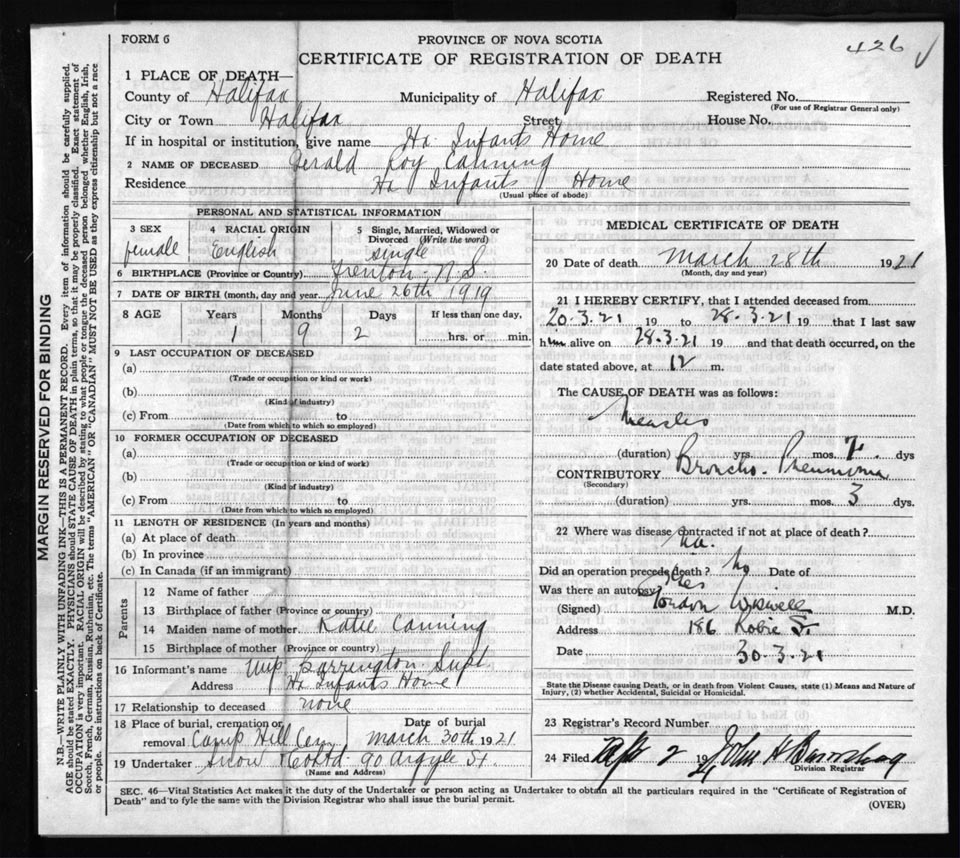 FORM 6
PROVINCE OF NOVA SCOTIA
426
CERTIFICATE OF REGISTRATION OF DEATH
1 PLACE OF DEATH—
County of Halifax Municipality of Halifax Registered No.
(For use of Registrar General only)
City or Town Halifax Street House No.
If in hospital or institution, give name Hx Infants Home
2 NAME OF DECEASED Gerald Roy Canning
Residence Hx Infants Home
(Usual place of abode)
PERSONAL AND STATISTICAL INFORMATION
3 SEX 4 RACIAL ORIGIN 5 Single, Married, Widowed or
Divorced (Write the word)
female English single
6 BIRTHPLACE (Province or Country) Trenton - N.S.
7 DATE OF BIRTH (month, day and year) June 26th 1919
8 AGE Years Months Days If less than one day,
1 9 2 hrs. or min.
9 LAST OCCUPATION OF DECEASED
(a)
(Trade or occupation or kind or work)
(b)
(Kind of industry)
(c) From to
(Date from which to which so employed)
10 FORMER OCCUPATION OF DECEASED
(a)
(Trade or occupation or kind of work)
(b)
(Kind of industry)
(c) From to
(Date from which to which so employed)
11 LENGTH OF RESIDENCE (In years and months)
(a) At place of death
(b) In province
(c) In Canada (if an immigrant)
Parents
12 Name of father
13 Birthplace of father (Province or country)
14 Maiden name of mother Katie Canning
15 Birthplace of mother (Province or country)
16 Informant's name Barrington Supt
Address Hx Infants Home
17 Relationship to deceased none
18 Place of burial, cremation or Date of burial
removal Camp Hill Cem. March 30th 1921
19 Undertaker Snow & Co Ltd 90 Argyle St.
(Name and Address)
MEDICAL CERTIFICATE OF DEATH
20 Date of death March 28th 1921
(Month, day and year)
21 I HEREBY CERTIFY, that I attended deceased from
20.3.21 19 to 28.3.21 19 that I last saw
him alive on 28.3.21 19 and that death occurred, on the
date stated above, at 12 m.
The CAUSE OF DEATH was as follows:
Measles
(duration) yrs. mos. 7. dys
CONTRIBUTORY Broncho-Pneumonia
(Secondary)
(duration) yrs. mos. 3 dys.
22 Where was disease contracted if not at place of death?
Did an operation precede death? No Date of
Was there an autopsy? Yes
(Signed) M.D.
Address 186 Robie St.
Date 30.3.21
State the Disease causing Death, or in death from Violent Causes, state (1) Means and Nature of
Injury, (2) whether Accidental, Suicidal or Homicidal.
23 Registrar's Record Number
24 Filed Apr 2 1921 John A
Division Registrar
SEC. 46—Vital Statistics Act makes it the duty of the Undertaker or person acting as Undertaker to obtain all the particulars required in the "Certificate of Registration of
Death" and to fyle the same with the Division Registrar who shall issue the burial permit.
(OVER)
MARGIN RESERVED FOR BINDING
N.B.—WRITE PLAINLY WITH UNFADING INK—THIS IS A PERMANENT RECORD. Every item of information should be carefully supplied.
AGE should be stated EXACTLY. PHYSICIANS should STATE CAUSE OF DEATH in plain terms, so that it may be properly classified. Exact statement of
OCCUPATION is very important. RACIAL ORIGIN will be described by stating to what people or tongue the deceased person belonged whether English, Irish,
Scotch, French, German, Russian, Ruthenian, etc. The terms "AMERICAN" OR "CANADIAN" MUST NOT BE USED as they express citizenship but not a race
or people. See instructions on back of Certificate.